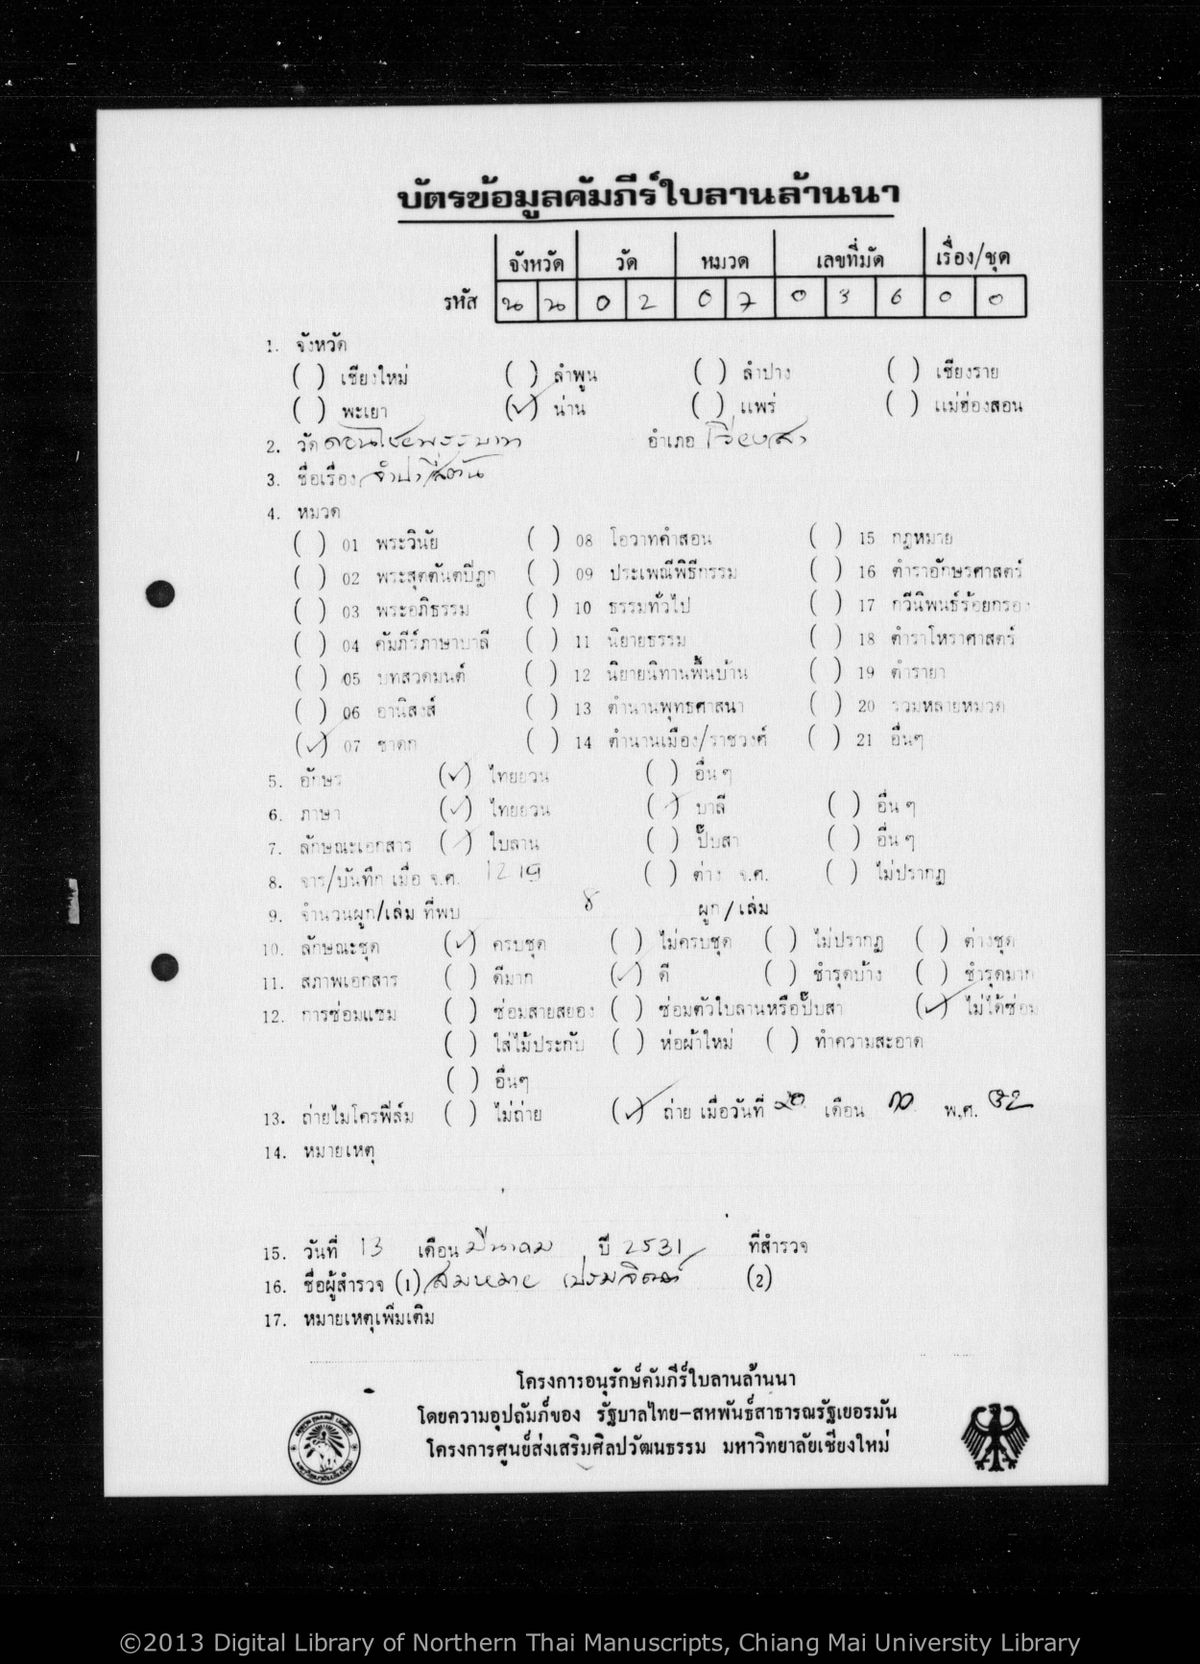 บัตรข้อมูลคัมภีร์ใบลานล้านนา
จังหวัด วัด หมวด เลขที่มัด เรื่อง/ชุด
รหัส น น 0 2 0 7 0 3 6 0 0
1. จังหวัด
( ) เชียงใหม่ ( ) ลำพูน ( ) ลำปาง ( ) เชียงราย
( ) พะเยา (✓) น่าน ( ) แพร่ ( ) แม่ฮ่องสอน
2. วัด ดอนไชยพระบาท อำเภอ เวียงสา
3. ชื่อเรื่อง จำปาสี่ต้น
4. หมวด
( ) 01 พระวินัย ( ) 08 โอวาทคำสอน ( ) 15 กฎหมาย
( ) 02 พระสุตตันตปิฎก ( ) 09 ประเพณีพิธีกรรม ( ) 16 ตำราอักษรศาสตร์
( ) 03 พระอภิธรรม ( ) 10 ธรรมทั่วไป ( ) 17 กวีนิพนธ์ร้อยกรอง
( ) 04 คัมภีร์ภาษาบาลี ( ) 11 นิยายธรรม ( ) 18 ตำราโหราศาสตร์
( ) 05 บทสวดมนต์ ( ) 12 นิยายนิทานพื้นบ้าน ( ) 19 ตำรายา
( ) 06 อานิสงส์ ( ) 13 ตำนานพุทธศาสนา ( ) 20 รวมหลายหมวด
(✓) 07 ชาดก ( ) 14 ตำนานเมือง/ราชวงศ์ ( ) 21 อื่นๆ
5. อักษร (✓) ไทยยวน ( ) อื่น ๆ
6. ภาษา (✓) ไทยยวน (✓) บาลี ( ) อื่น ๆ
7. ลักษณะเอกสาร (✓) ใบลาน ( ) ปั๊บสา ( ) อื่น ๆ
8. จาร/บันทึก เมื่อ จ.ศ. 1219 ( ) ต่าง จ.ศ. ( ) ไม่ปรากฏ
9. จำนวนผูก/เล่ม ที่พบ 8 ผูก/เล่ม
10. ลักษณะชุด (✓) ครบชุด ( ) ไม่ครบชุด ( ) ไม่ปรากฏ ( ) ต่างชุด
11. สภาพเอกสาร ( ) ดีมาก (✓) ดี ( ) ชำรุดบ้าง ( ) ชำรุดมาก
12. การซ่อมแซม ( ) ซ่อมสายสยอง ( ) ซ่อมตัวใบลานหรือปั๊บสา (✓) ไม่ได้ซ่อม
( ) ใส่ไม้ประกับ ( ) ห่อผ้าใหม่ ( ) ทำความสะอาด
( ) อื่นๆ
13. ถ่ายไมโครฟิล์ม ( ) ไม่ถ่าย (✓) ถ่าย เมื่อวันที่ เดือน พ.ศ. 32
14. หมายเหตุ
15. วันที่ 13 เดือน มีนาคม ปี 2531 ที่สำรวจ
16. ชื่อผู้สำรวจ (1) สมหมาย เปรมจิตต์ (2)
17. หมายเหตุเพิ่มเติม
โครงการอนุรักษ์คัมภีร์ใบลานล้านนา
โดยความอุปถัมภ์ของ รัฐบาลไทย-สหพันธ์สาธารณรัฐเยอรมัน
โครงการศูนย์ส่งเสริมศิลปวัฒนธรรม มหาวิทยาลัยเชียงใหม่
©2013 Digital Library of Northern Thai Manuscripts, Chiang Mai University Library